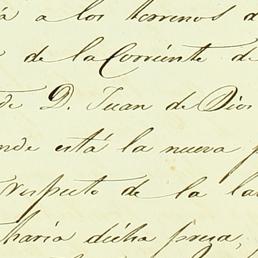 á á los terrenos d
de la Corriente de
de D. Juan de Dios
nde está la nueva p
respecto de la la
haria dicha presa,